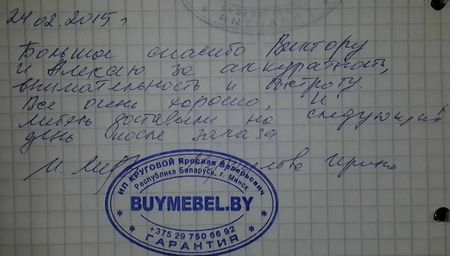 24.02.2015 г
Большое спасибо Виктору
и Алексею за аккуратность,
внимательность и быстроту.
Все очень хорошо, и
мебель доставили на следующий
день после заказа
Ирина
ИП КРУГОВОЙ Ярослав Валерьевич
Республика Беларусь, г. Минск
BUYMEBEL.BY
+375 29 750 66 92
ГАРАНТИЯ